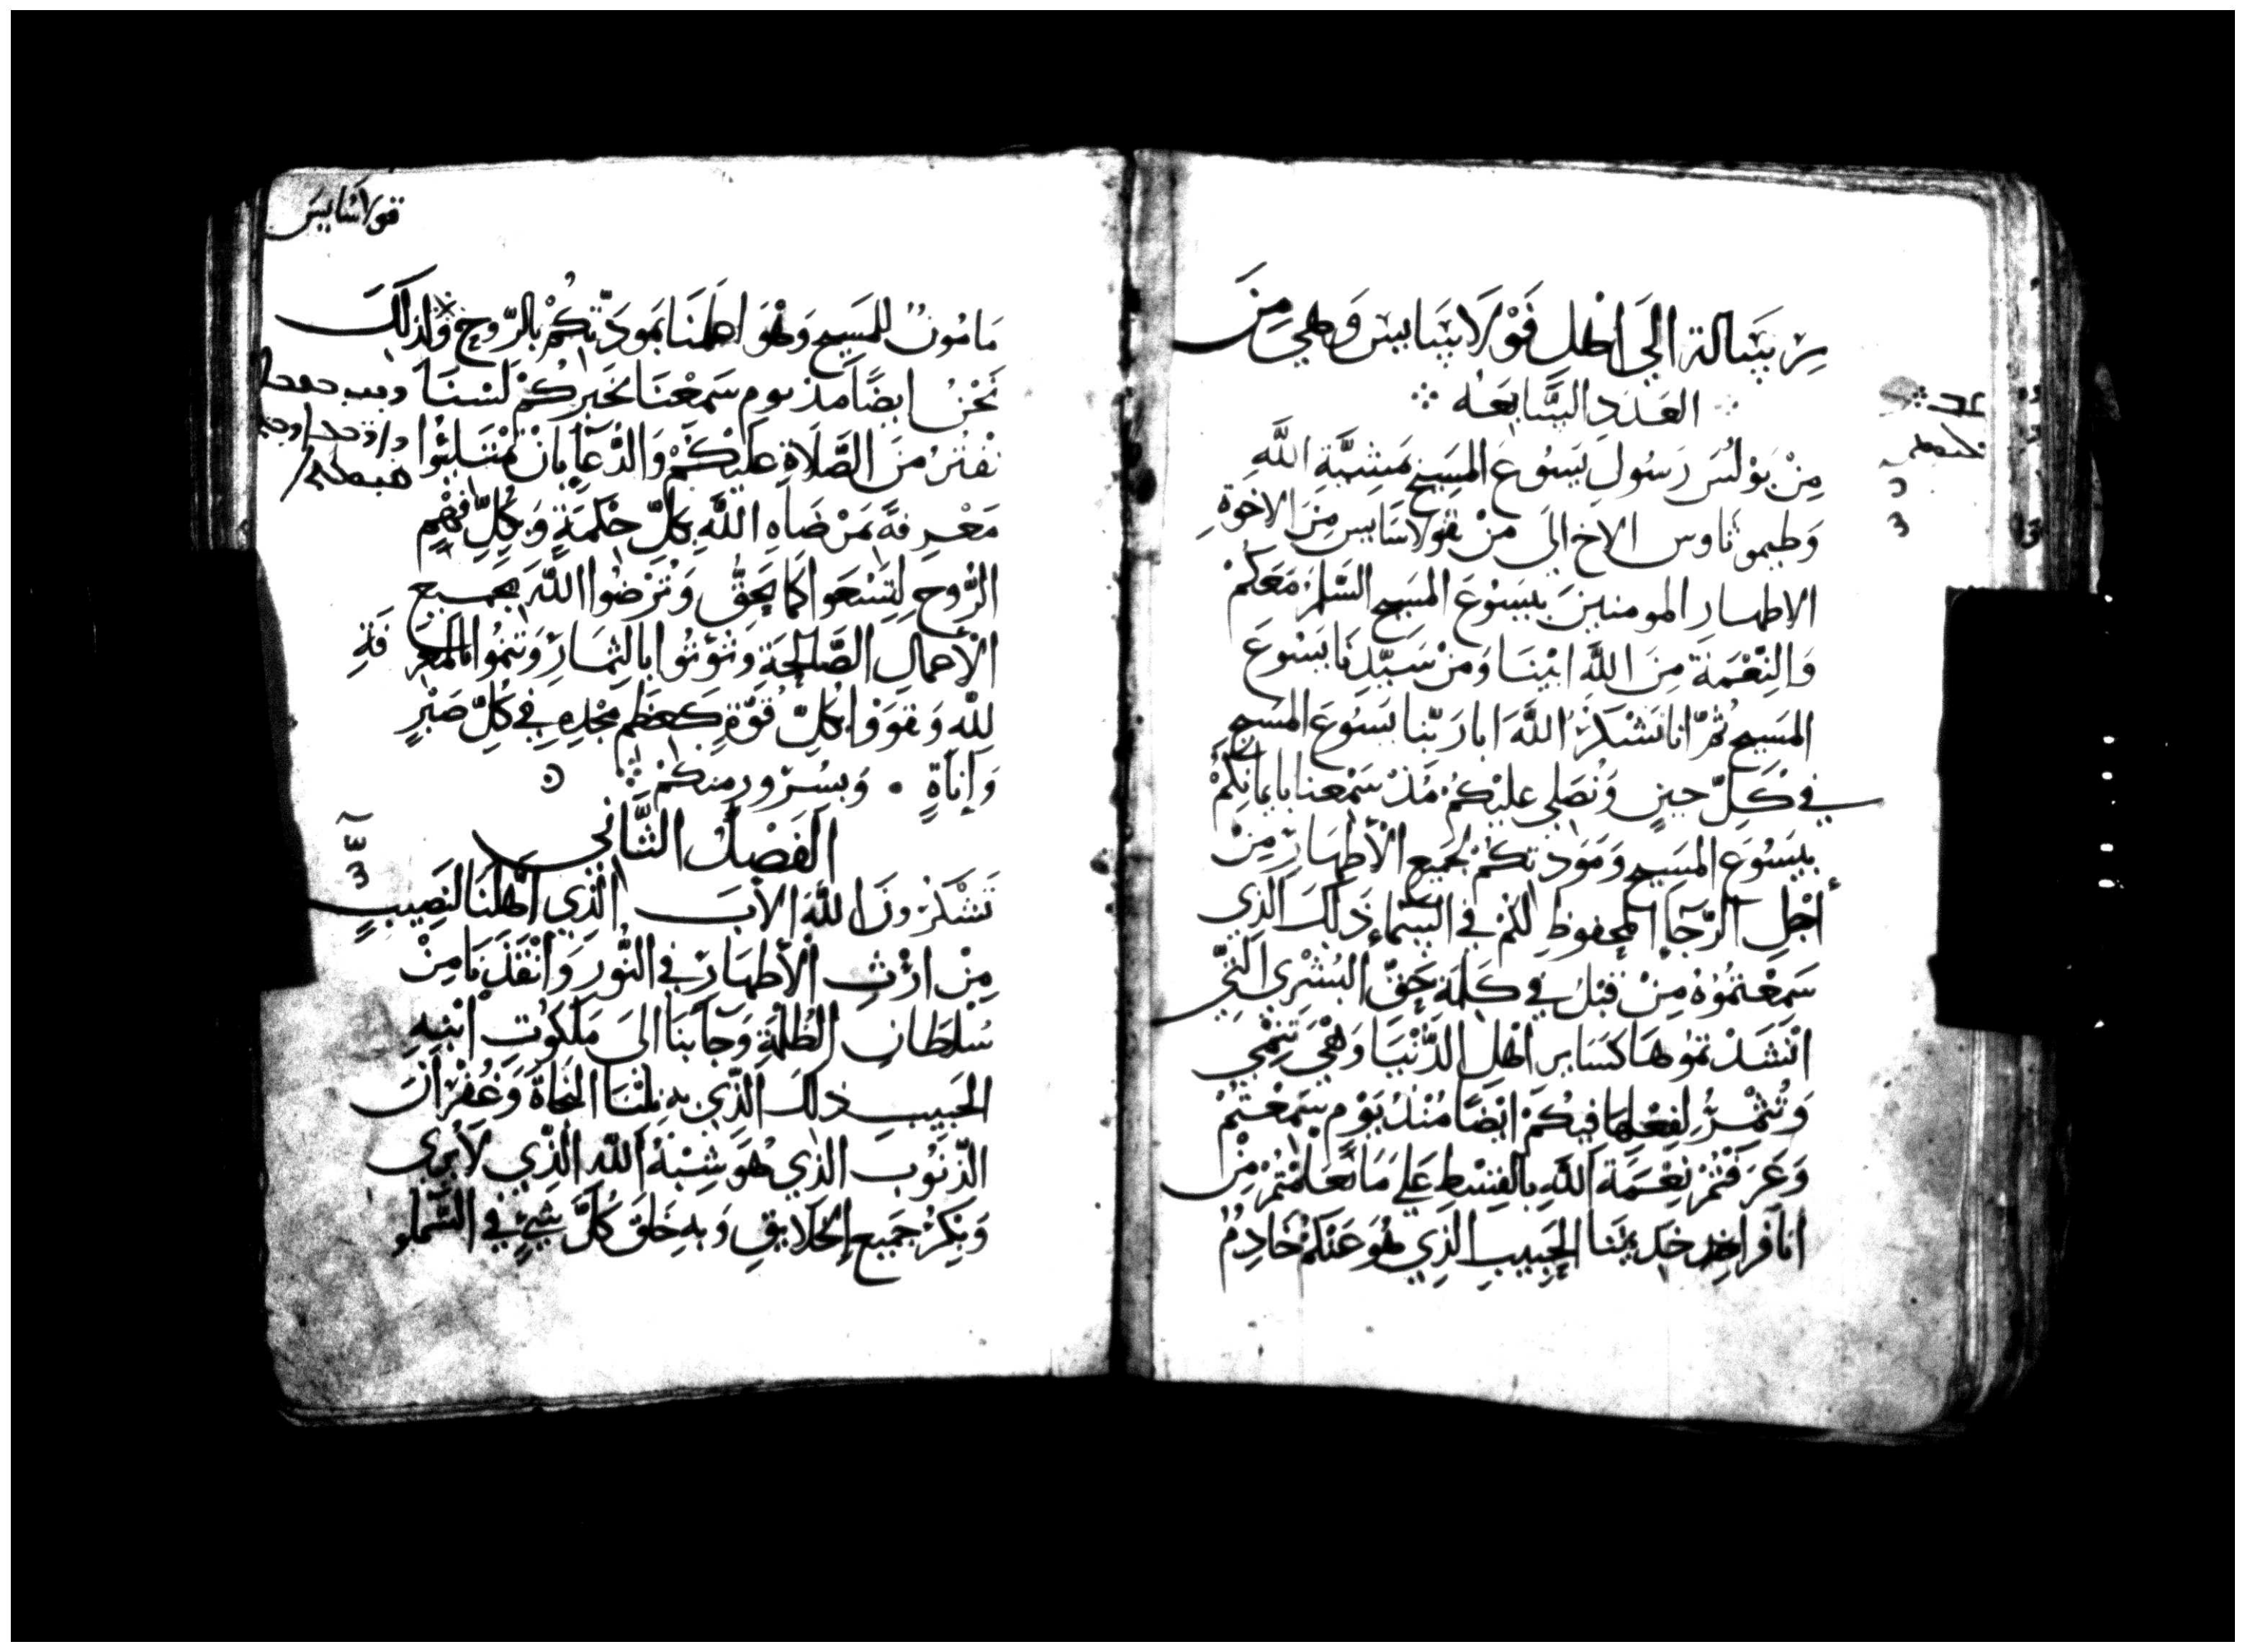 رِسَالة الَي اهْلِ قَوْلَاسَايِسَ وَهِي مِنَ
العَدَد السَّابعَه
مِنْ بَوْلُسَ رَسُولِ يَسُوع المَسِيح بمَشِيَّة اللَّهِ
وَطيموثاوس الاخ الَى مَنْ بقولاسَايس مِنَ الاخوةِ
الاطهار المومنينَ بيسَوُعَ المسيح السَّلمُ مَعَكُمْ
وَالنِّعْمَة مِنَ اللَّه ابْيْنَا وَمنْ سَيّدنَا يسَوُعَ
المَسِيح ثمَّ انا نَشْكُرُ اللَّهَ ابا رَبّنا يسَوُعَ المسَيح
في كَلّ حِينٍ وَنُصَلي عليْكمْ مُذ سَمْعنا بايمانِكمْ
بيسَوُعَ المسَيح وَمَوَدّتكمْ لجَمِيع الأطهَارِ مِنْ
أجْلِ الرَّجَآءِ المحفوظِ لكمْ في السَّماءِ ذَلكَ الَّذِي
سَمِعْتمُوهُ مِنْ قبْلُ في كَلِمَة حَقّ البُشْرَي الّتي
انْشَدْتموُهَا كسَاير اهْل الدُّنْيَا وَهْيَ تَنمْي
وَتُثمْرُ لفِعْلهَا فيكُمْ ايْضًا مُنْذُ يَوْم سَمِعْتمْ
وَعَرَفْتُمْ نِعْمَة اللَّهِ بالقِسْطِ عَلي مَا تعَلمْتُمْ مِنْ
افافراس خديمنَا الحَبِيبِ الَّذِي هُوَ عَنكمْ خَادِمُ
قولاسَايسَ
مَامُونٌ للمَسِيح وَهْوَ اعلَمنَا بمَودَّتكُمْ بالرُّوحِ وَلذلكَ
نَحْنُ ايضًا مذ يوم سَمِعْنَا بخَبرِكُمْ لَسْنَا
نفْتُرُ مِنَ الصَّلَاةِ عَليْكمْ وَالدُّعَآءِ بان تمْتَلئوا
مَعْرِفةً بمَرْضَاهِ اللَّهِ بكلّ حكمَةٍ وَبكُلّ فَهْمٍ
الرُّوح لِتسْعَوا كما يَحِقُّ وَتُرْضُوا اللَّهَ بجميعِ
الأعمَالِ الصَّالحةِ وَتؤتوُا بالثِمَارِ وَتنمُوا بالمَعْرِفةِ
للهِ وَتقوَوْا بكُلّ قوَّةٍ كعظم مجْدِهِ في كُلّ صَبْرٍ
وَإنَاةٍ . وَبسُرُورٍ منكمْ
الفَصْلُ الثَّاني
تَشْكُرُونَ اللَّهَ الأبَ الَّذِي أهْلنَا لنَصِيبٍ
مِنْ ارْثِ الأطهَارِ في النُّورِ وَانْقَذنَا مِنْ
سُلطَانِ الظُلمَةِ وَجآبنَا الىَ مَلكُوت ابْنِهِ
الحَبيب ذلك الَّذي بهِ نِلنَا النَجَاةَ وَغُفْرَانَ
الذّنوُبَ الَّذِي هُوَ شِبْهُ اللَّه الَّذِي لَا يُرَى
وَبكرُ جَمِيع الخلَايقِ وَبهِ خَلقَ كُلَّ شيْءٍ في السَّماءِ و